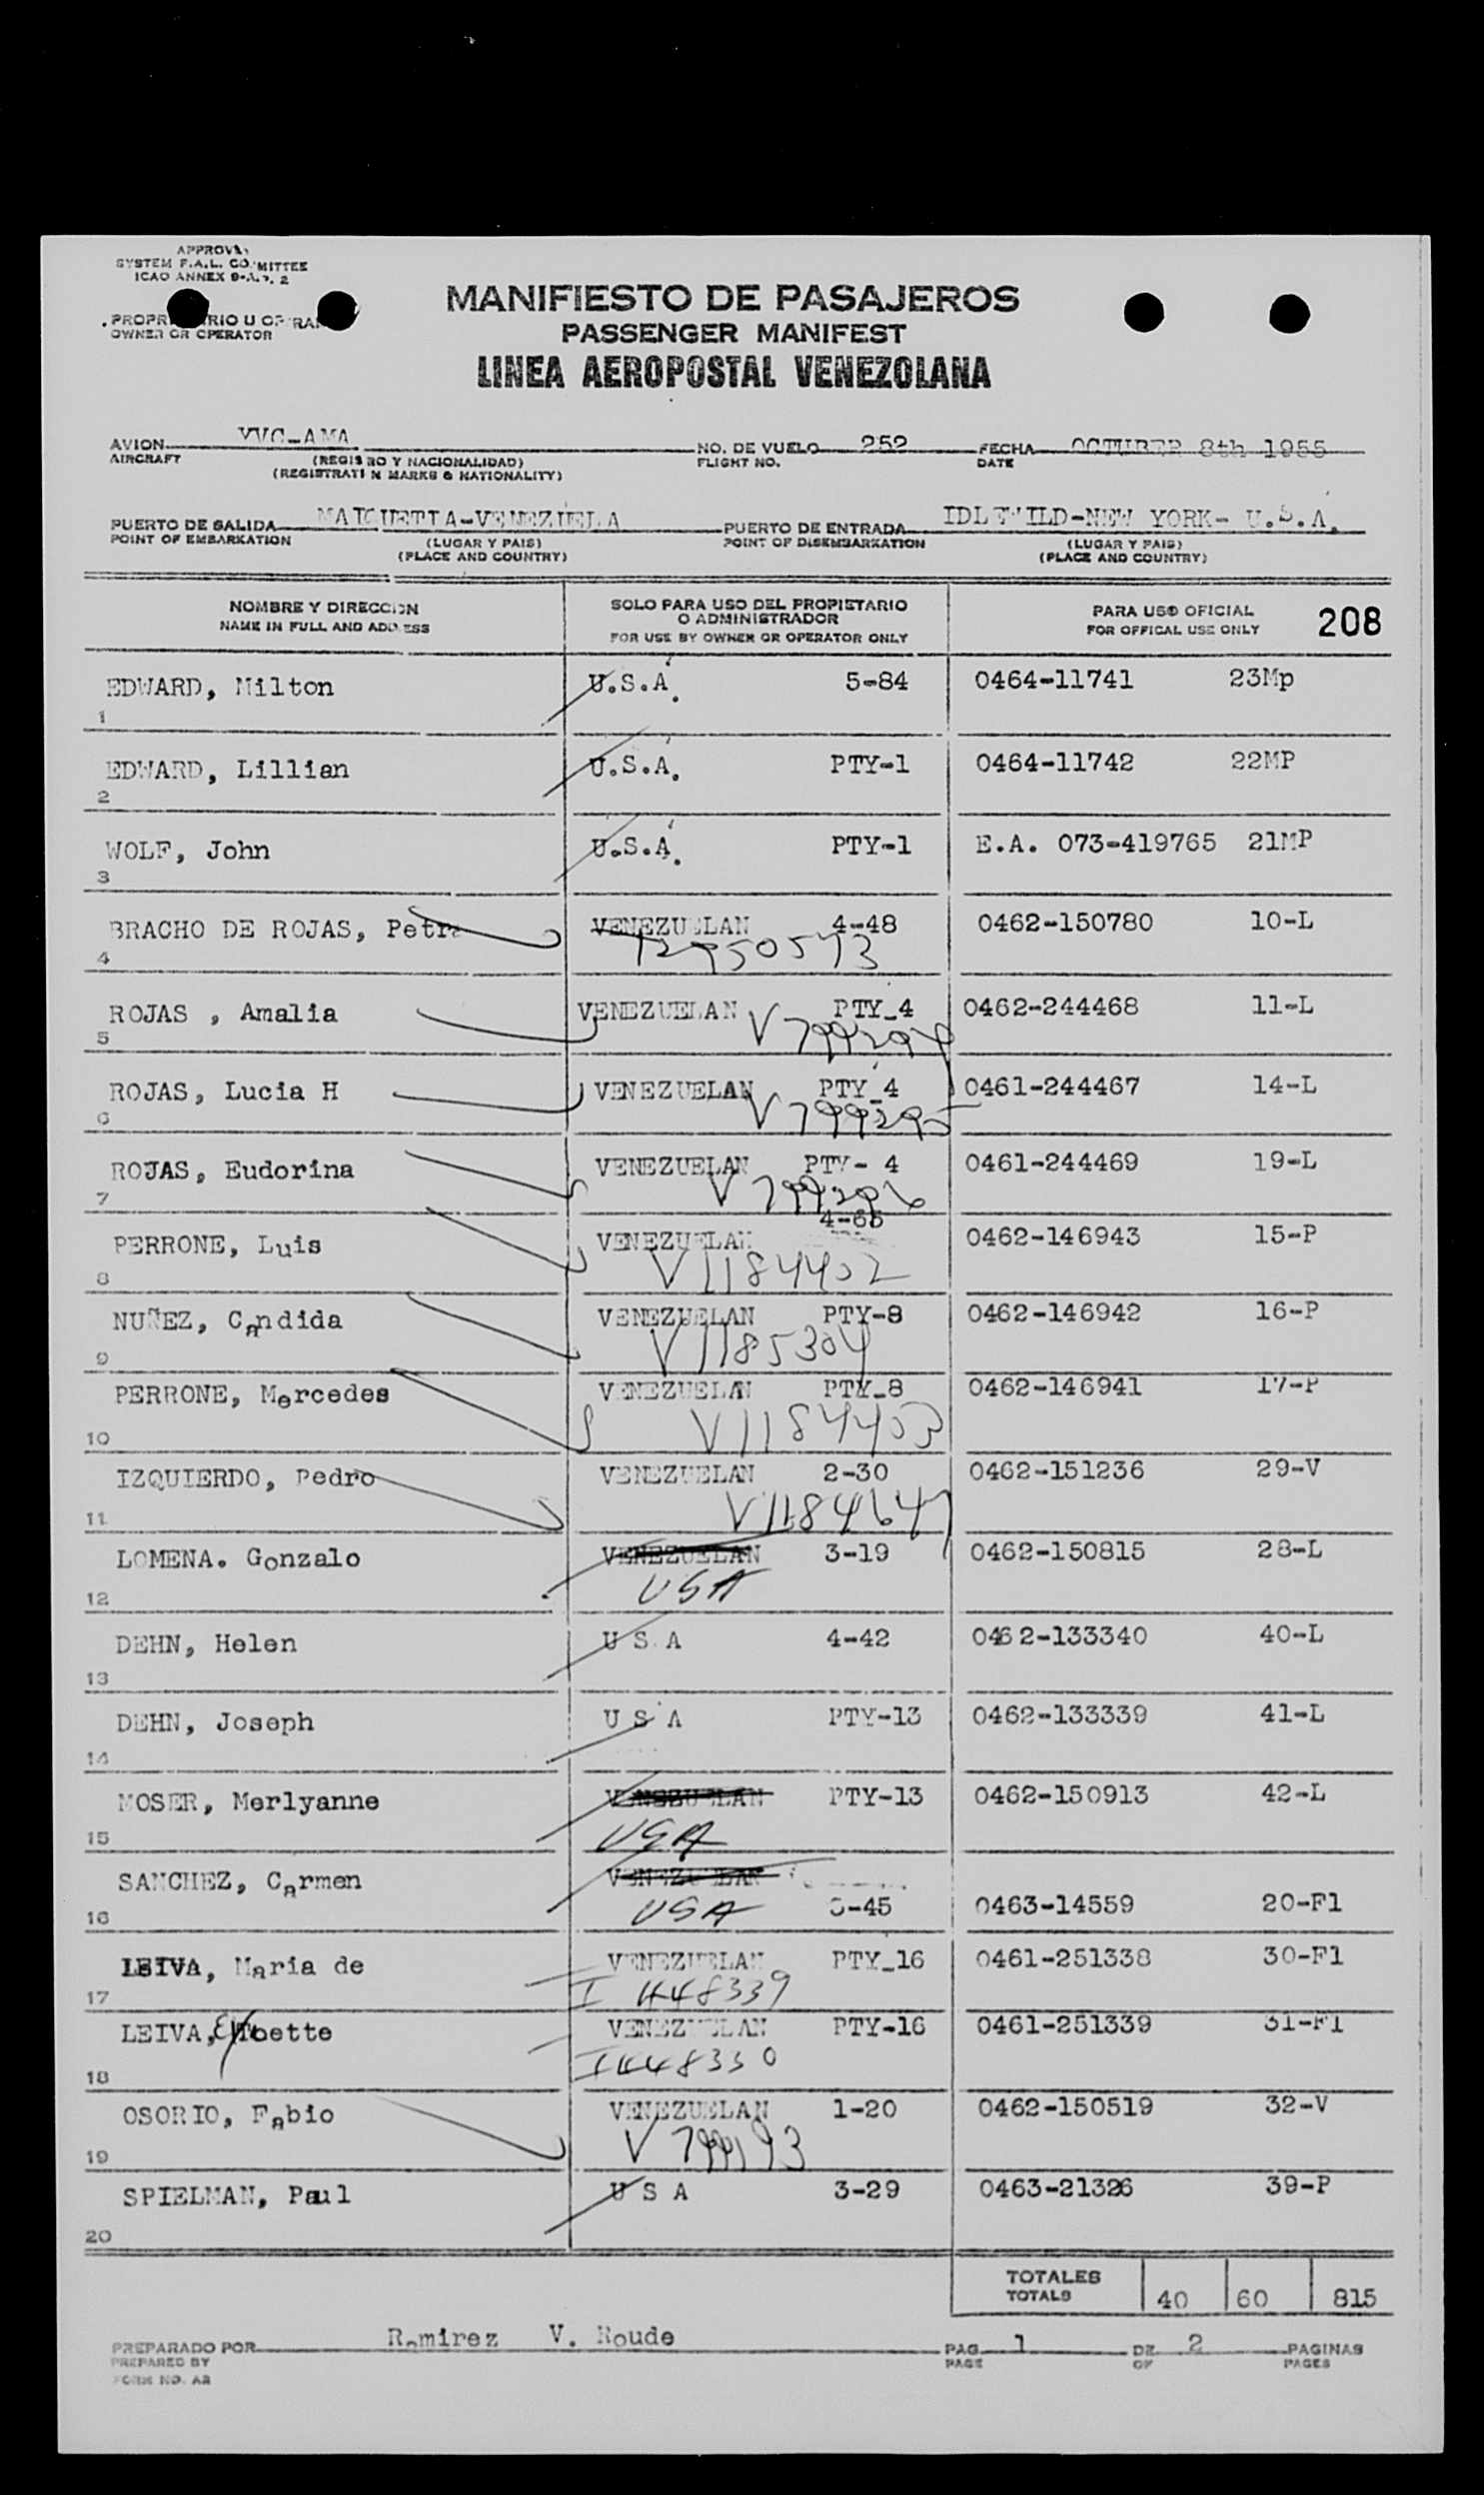 SYSTEM F.A.L. COMMITTEE
ICAO ANNEX 9-Ap. 2
OWNER OR OPERATOR
MANIFIESTO DE PASAJEROS
PASSENGER MANIFEST
LINEA AEROPOSTAL VENEZOLANA
AVION YVC-AMA NO. DE VUELO 252 FECHA OCTUBER 8th 1955
AIRCRAFT FLIGHT NO. DATE
(REGISTRO Y NACIONALIDAD)
(REGISTRATION MARKS & NATIONALITY)
PUERTO DE SALIDA MAIQUETIA-VENEZUELA PUERTO DE ENTRADA IDLEWILD-NEW YORK- U.S.A.
POINT OF EMBARKATION (LUGAR Y PAIS) POINT OF DISEMBARKATION (LUGAR Y PAIS)
(PLACE AND COUNTRY) (PLACE AND COUNTRY)
NOMBRE Y DIRECCION SOLO PARA USO DEL PROPIETARIO O ADMINISTRADOR PARA USO OFICIAL 208
NAME IN FULL AND ADDRESS FOR USE BY OWNER OR OPERATOR ONLY FOR OFFICAL USE ONLY
EDWARD, Milton U.S.A. 5-84 0464-11741 23Mp
1
EDWARD, Lillian U.S.A. PTY-1 0464-11742 22MP
2
WOLF, John U.S.A. PTY-1 E.A. 073-419765 21MP
3
BRACHO DE ROJAS, Petra VENEZUELAN 4-48 0462-150780 10-L
4
ROJAS , Amalia VENEZUELAN PTY_4 0462-244468 11-L
5 V799294
ROJAS, Lucia H VENEZUELAN PTY_4 0461-244467 14-L
6 V799295
ROJAS, Eudorina VENEZUELAN PTY- 4 0461-244469 19-L
7 V799296
4-65
PERRONE, Luis VENEZUELAN 0462-146943 15-P
8 V1184402
NUÑEZ, Candida VENEZUELAN PTY-8 0462-146942 16-P
9 V1185304
PERRONE, Mercedes VENEZUELAN PTY_8 0462-146941 17-P
10 V1184403
IZQUIERDO, Pedro VENEZUELAN 2-30 0462-151236 29-V
11 V1184647
LOMENA. Gonzalo VENEZUELAN 3-19 0462-150815 28-L
12 USA
DEHN, Helen U S A 4-42 0462-133340 40-L
13
DEHN, Joseph U S A PTY-13 0462-133339 41-L
14
MOSER, Merlyanne VENEZUELAN PTY-13 0462-150913 42-L
15 USA
SANCHEZ, Carmen VENEZUELAN
16 USA 0463-14559 20-F1
LEIVA, Maria de VENEZUELAN PTY_16 0461-251338 30-F1
17 I 448339
LEIVA, VENEZUELAN PTY-16 0461-251339 31-F1
18 I448330
OSORIO, Fabio VENEZUELAN 1-20 0462-150519 32-V
19 V799193
SPIELMAN, Paul U S A 3-29 0463-21326 39-P
20
TOTALES
TOTALS 40 60 815
PREPARADO POR Ramirez V. Roude PAG. 1 DE 2 PAGINAS
PREPARED BY PAGE OF PAGES
FORM NO. AR